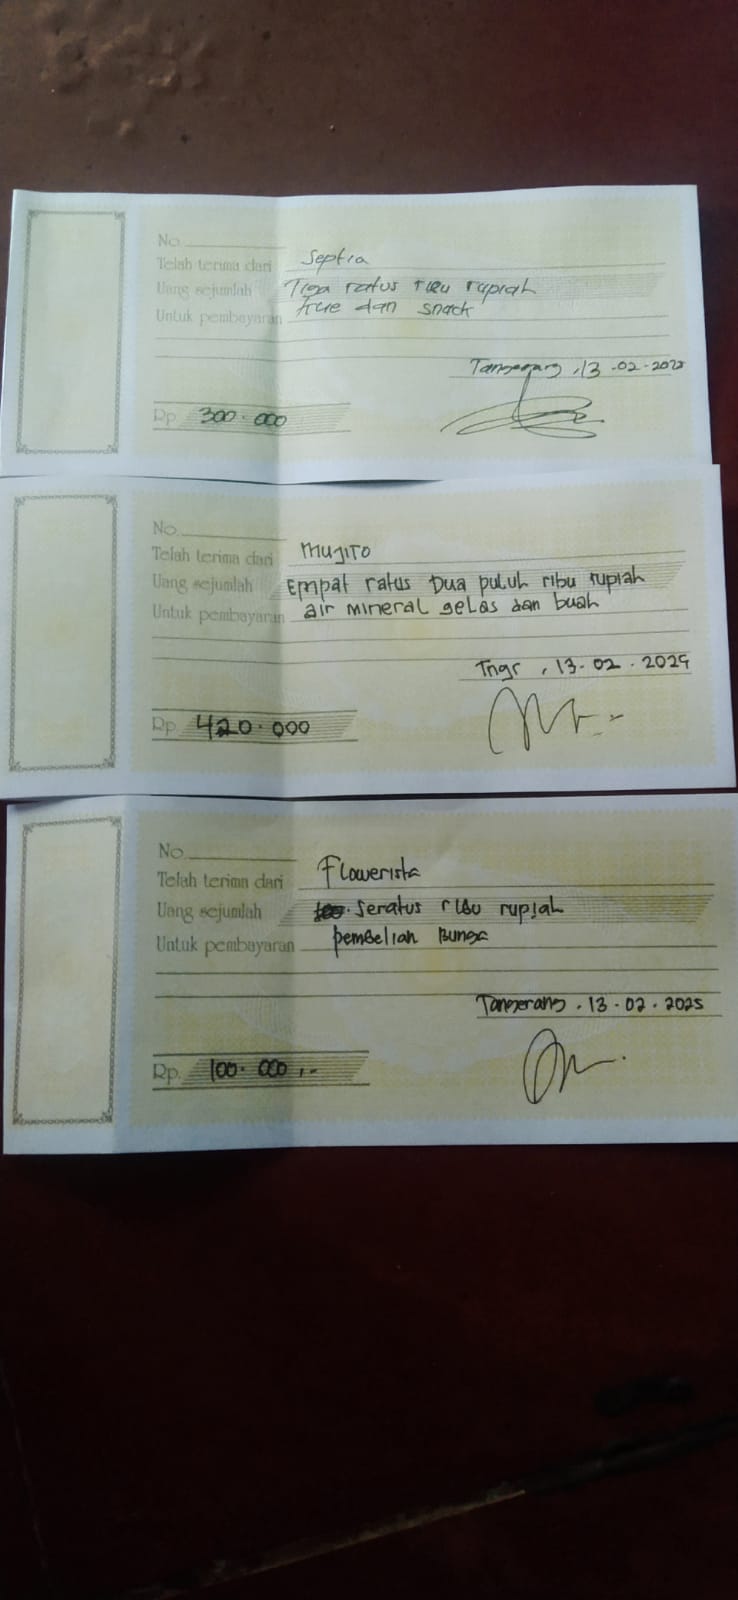 No.
Telah terima dari Septia
Uang sejumlah Tiga ratus ribu rupiah
Untuk pembayaran kue dan snack
Tangerang, 13-02-2025
Rp 300.000
No.
Telah terima dari Mujito
Uang sejumlah Empat ratus Dua puluh ribu rupiah
Untuk pembayaran air mineral gelas dan buah
Tngr, 13-02.2025
Rp 420.000
No.
Telah terima dari Flowerista
Uang sejumlah Seratus ribu rupiah
Untuk pembayaran pembelian Bunga
Tangerang, 13-02.2025
Rp. 100.000,-